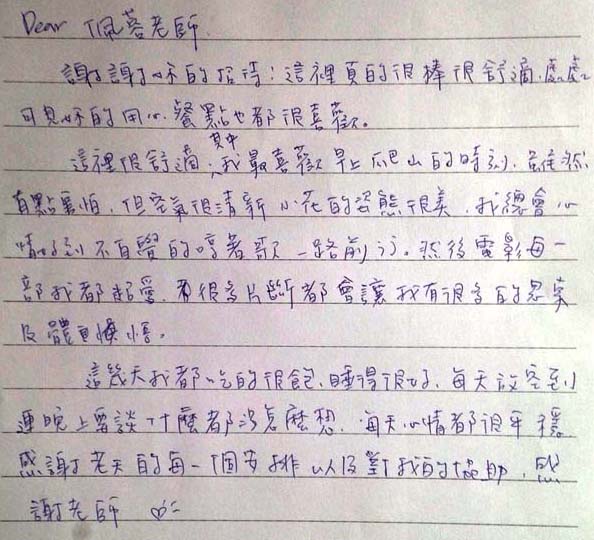 Dear 佩蓉老師
謝謝妳的招待!這裡真的很棒很舒適.處處
可見妳的用心.餐點也都很喜歡。
這裡很舒適,其中我最喜歡早上爬山的時刻,雖然
有點害怕.但空氣很清新小花的姿態很美.我總會心
情好到不自覺的哼著歌一路前行。然後電影每一
部我都超愛.有很多片斷都會讓我有很多的思索
及體會懊悟。
這幾天我都吃的很飽.睡得很好.每天放空到
連晚上要談什麼都沒怎麼想.每天心情都很平穩
感謝老天的每一個安排以及對我的協助.感
謝老師